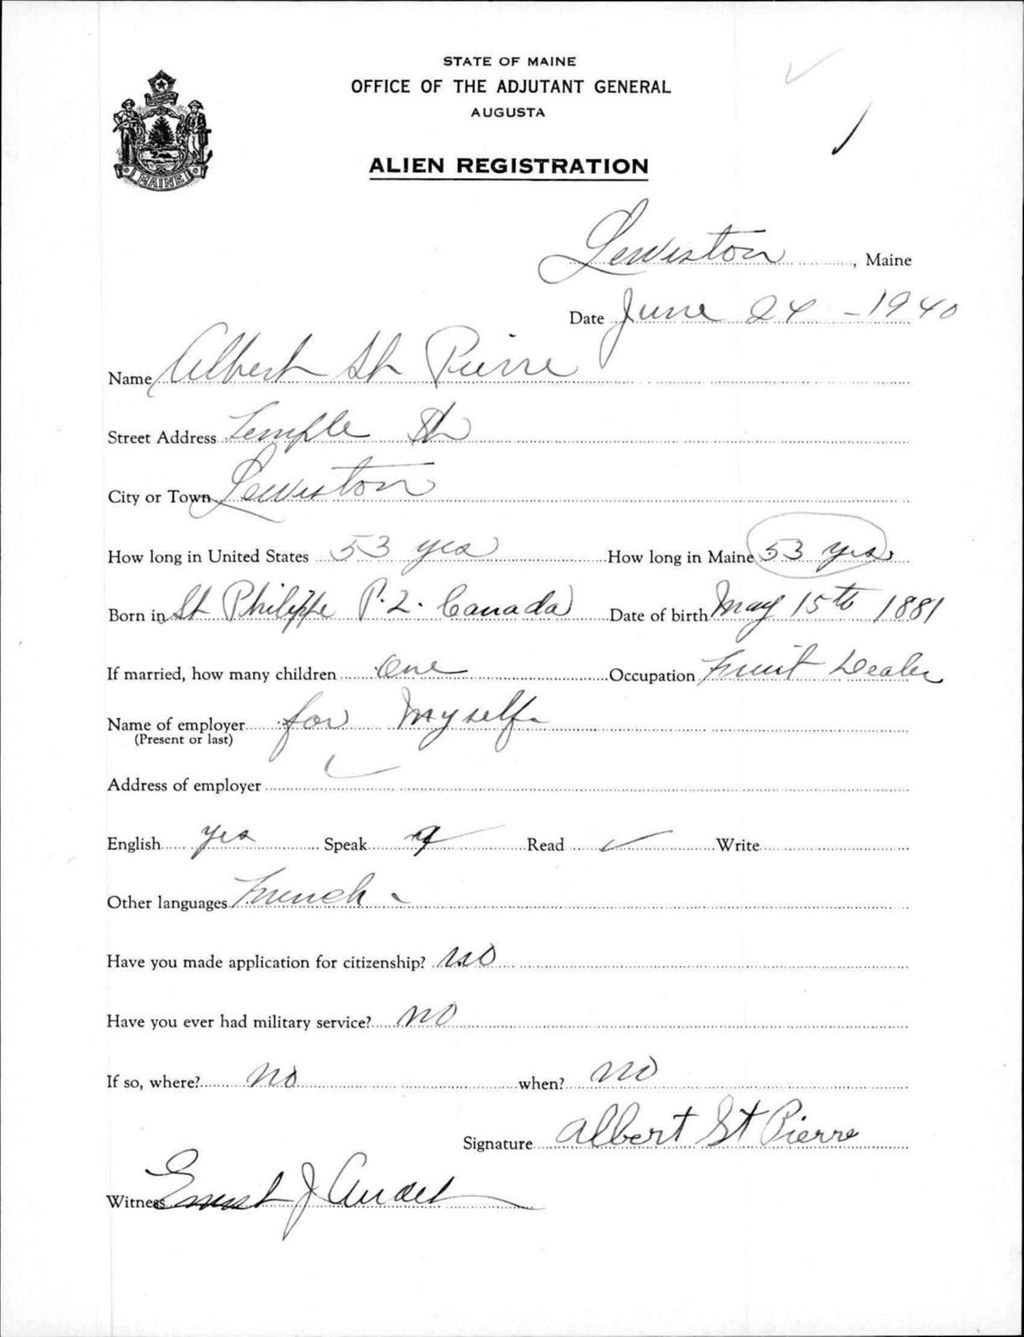 STATE OF MAINE
OFFICE OF THE ADJUTANT GENERAL
AUGUSTA
ALIEN REGISTRATION
MAINE
Lewiston, Maine
Date June 24 - 1940
Name Albert St Pierre
Street Address Temple St
City or Town Lewiston
How long in United States 53 yrs How long in Maine 53 yrs
Born in St Philippe P.Q. Canada Date of birth May 15th 1881
If married, how many children One Occupation Fruit Dealer
Name of employer for Myself
(Present or last)
Address of employer
English yes Speak Read ✓ Write
Other languages French -
Have you made application for citizenship? no
Have you ever had military service? no
If so, where? no when? no
Signature Albert St Pierre
Witness Ernest J Audet